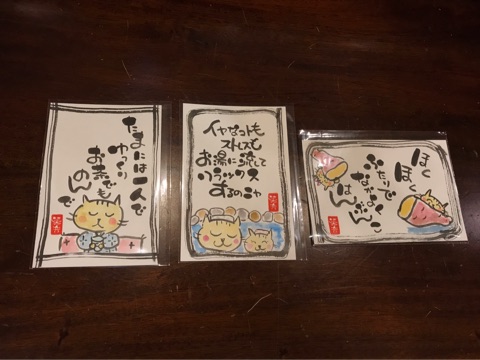 たまには一人で
ゆっくり
お茶でも
のんで
イヤなコトも
ストレスも
お湯に流して
リラックス
するのニャ
ほく
ほく
ふたりで
なかよく
はんぶんこ